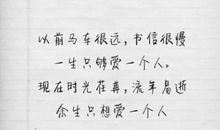 以前马车很远，书信很慢
一生只够爱一个人。
现在时光荏苒，流年易逝
余生只想爱一个人